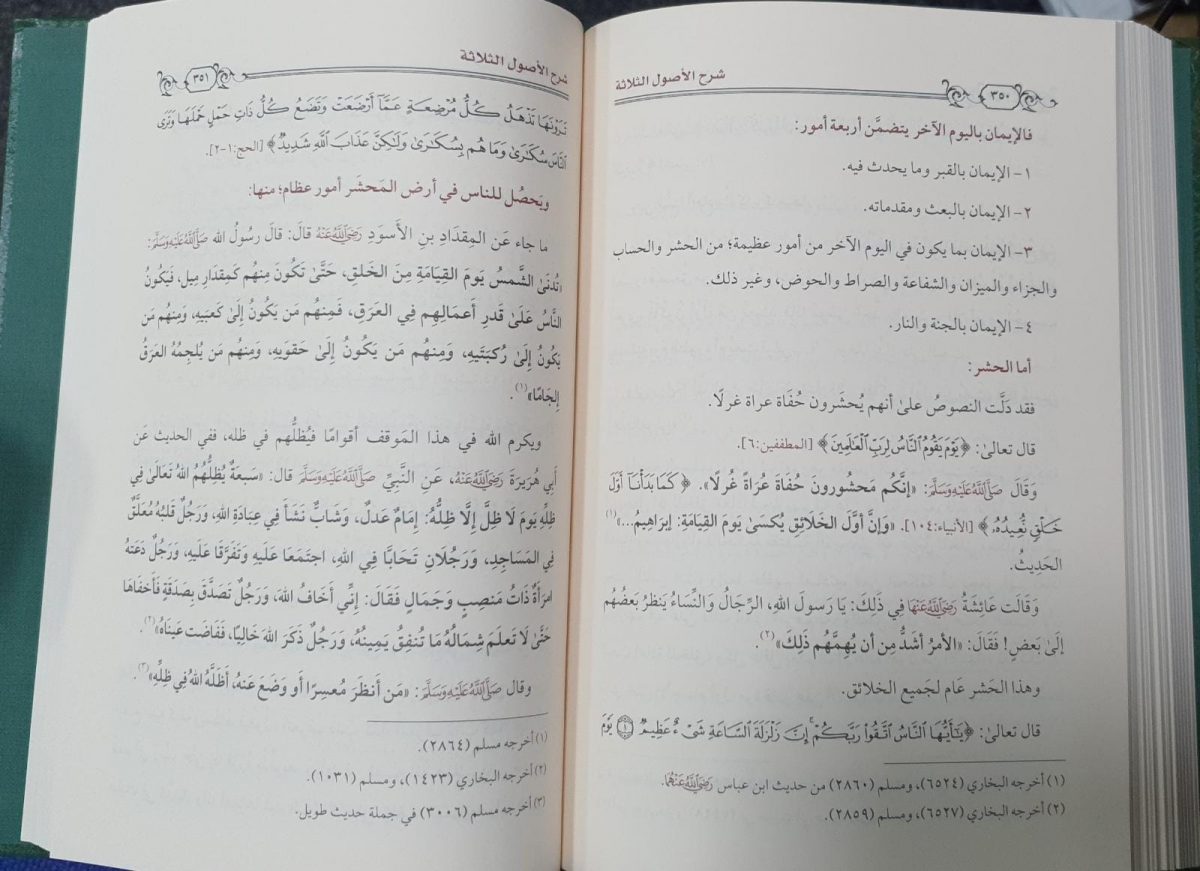 شرح الأصول الثلاثة
٣٥٠
فالإيمان باليوم الآخر يتضمَّن أربعة أمور:
١- الإيمان بالقبر وما يحدث فيه.
٢- الإيمان بالبعث ومقدماته.
٣- الإيمان بما يكون في اليوم الآخر من أمور عظيمة؛ من الحشر والحساب
والجزاء والميزان والشفاعة والصراط والحوض، وغير ذلك.
٤- الإيمان بالجنة والنار.
أما الحشر:
فقد دَلَّت النصوصُ علىٰ أنهم يُحشَرون حُفَاة عراة غرلًا.
قال تعالىٰ: ﴿يَوْمَ يَقُومُ ٱلنَّاسُ لِرَبِّ ٱلْعَٰلَمِينَ﴾ [المطففين:٦].
وَقَالَ صَلَّى اللَّهُ عَلَيْهِ وَسَلَّمَ: «إنَّكُم مَحشُورونَ حُفَاةً عُرَاةً غُرلًا». ﴿كَمَا بَدَأْنَآ أَوَّلَ
خَلْقٍ نُّعِيدُهُۥ﴾ [الأنبياء:١٠٤]. «وَإنَّ أوَّلَ الخَلائقِ يُكسَىٰ يَومَ القِيَامَةِ: إبرَاهِيمُ...»(١)
الحَدِيثُ.
وَقَالَت عَائِشَةُ رَضِيَ اللَّهُ عَنْهَا فِي ذَلِكَ: يَا رَسولَ اللهِ، الرِّجَالُ وَالنِّسَاءُ يَنظرُ بَعضُهُم
إلَىٰ بَعضٍ! فَقَالَ: «الأمرُ أشَدُّ مِن أن يُهِمَّهُم ذَلِكَ»(٢).
وهذا الحَشر عَام لجَميع الخلائق.
قال تعالىٰ: ﴿يَٰٓأَيُّهَا ٱلنَّاسُ ٱتَّقُوا۟ رَبَّكُمْ ۚ إِنَّ زَلْزَلَةَ ٱلسَّاعَةِ شَىْءٌ عَظِيمٌ ١ يَوْمَ
(١) أخرجه البخاري (٦٥٢٤)، ومسلم (٢٨٦٠) من حديث ابن عباس رَضِيَ اللَّهُ عَنْهُمَا.
(٢) أخرجه البخاري (٦٥٢٧)، ومسلم (٢٨٥٩).
شرح الأصول الثلاثة
٣٥١
تَرَوْنَهَا تَذْهَلُ كُلُّ مُرْضِعَةٍ عَمَّآ أَرْضَعَتْ وَتَضَعُ كُلُّ ذَاتِ حَمْلٍ حَمْلَهَا وَتَرَى
ٱلنَّاسَ سُكَٰرَىٰ وَمَا هُم بِسُكَٰرَىٰ وَلَٰكِنَّ عَذَابَ ٱللَّهِ شَدِيدٌ﴾ [الحج:١-٢].
ويَحصُل للناس في أرض المَحشَر أمور عظام؛ منها:
ما جاء عَن المِقدَادِ بنِ الأسوَدِ رَضِيَ اللَّهُ عَنْهُ قالَ: قالَ رسُولُ الله صَلَّى اللَّهُ عَلَيْهِ وَسَلَّمَ:
«تُدنَىٰ الشَّمسُ يَومَ القِيَامَةِ مِنَ الخَلقِ، حَتَّىٰ تَكُونَ مِنهُم كَمِقدَارِ مِيلٍ، فَيَكُونُ
النَّاسُ عَلَىٰ قَدرِ أعمَالِهِم فِي العَرَقِ، فَمِنهُم مَن يَكُونُ إلَىٰ كَعبَيهِ، وَمِنهُم مَن
يَكُونُ إلَىٰ رُكبَتَيهِ، وَمِنهُم مَن يَكُونُ إلَىٰ حَقوَيهِ، وَمِنهُم مَن يُلجِمُهُ العَرَقُ
إلجَامًا»(١).
ويكرم الله في هذا المَوقف أقوامًا فيُظلُّهم في ظله، ففي الحديث عَن
أَبِي هُرَيرَةَ رَضِيَ اللَّهُ عَنْهُ، عَنِ النَّبِيِّ صَلَّى اللَّهُ عَلَيْهِ وَسَلَّمَ قالَ: «سَبعَةٌ يُظِلُّهُمُ اللهُ تَعَالَىٰ فِي
ظِلِّهِ يَومَ لَا ظِلَّ إلَّا ظِلُّهُ: إمَامٌ عَدلٌ، وَشَابٌّ نَشَأَ فِي عِبَادَةِ اللهِ، وَرَجُلٌ قَلبُهُ مُعَلَّقٌ
فِي المَسَاجِدِ، وَرَجُلَانِ تَحَابَّا فِي اللهِ، اجتَمَعَا عَلَيهِ وَتَفَرَّقَا عَلَيهِ، وَرَجُلٌ دَعَتهُ
امرَأةٌ ذَاتُ مَنصِبٍ وَجَمَالٍ فَقَالَ: إنِّي أخَافُ اللهَ، وَرَجُلٌ تَصَدَّقَ بِصَدَقَةٍ فَأخفَاهَا
حَتَّىٰ لَا تَعلَمَ شِمَالُهُ مَا تُنفِقُ يَمِينُهُ، وَرَجُلٌ ذَكَرَ اللهَ خَالِيًا، فَفَاضَت عَينَاهُ»(٢).
وقال صَلَّى اللَّهُ عَلَيْهِ وَسَلَّمَ: «مَن أنظَرَ مُعسِرًا أو وَضَعَ عَنهُ، أظَلَّهُ اللهُ فِي ظِلِّهِ»(٣).
(١) أخرجه مسلم (٢٨٦٤).
(٢) أخرجه البخاري (١٤٢٣)، ومسلم (١٠٣١).
(٣) أخرجه مسلم (٣٠٠٦) في جملة حديث طويل.